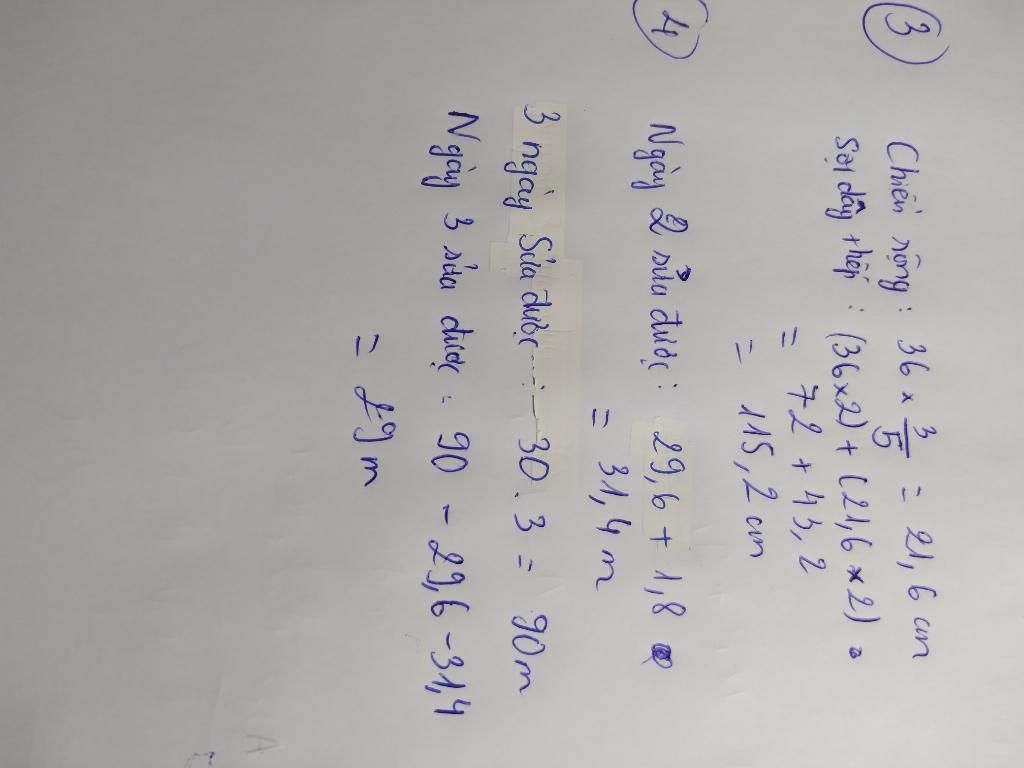 ③ Chiều rộng: 36 × 3/5 = 21,6 cm
Sợi dây thép: (36×2) + (21,6 × 2).
= 72 + 43,2
= 115,2 cm
④ Ngày 2 sửa được: 29,6 + 1,8
= 31,4 m
3 ngày sửa được: 30.3 = 90m
Ngày 3 sửa được: 90 - 29,6 - 31,4
= 29 m